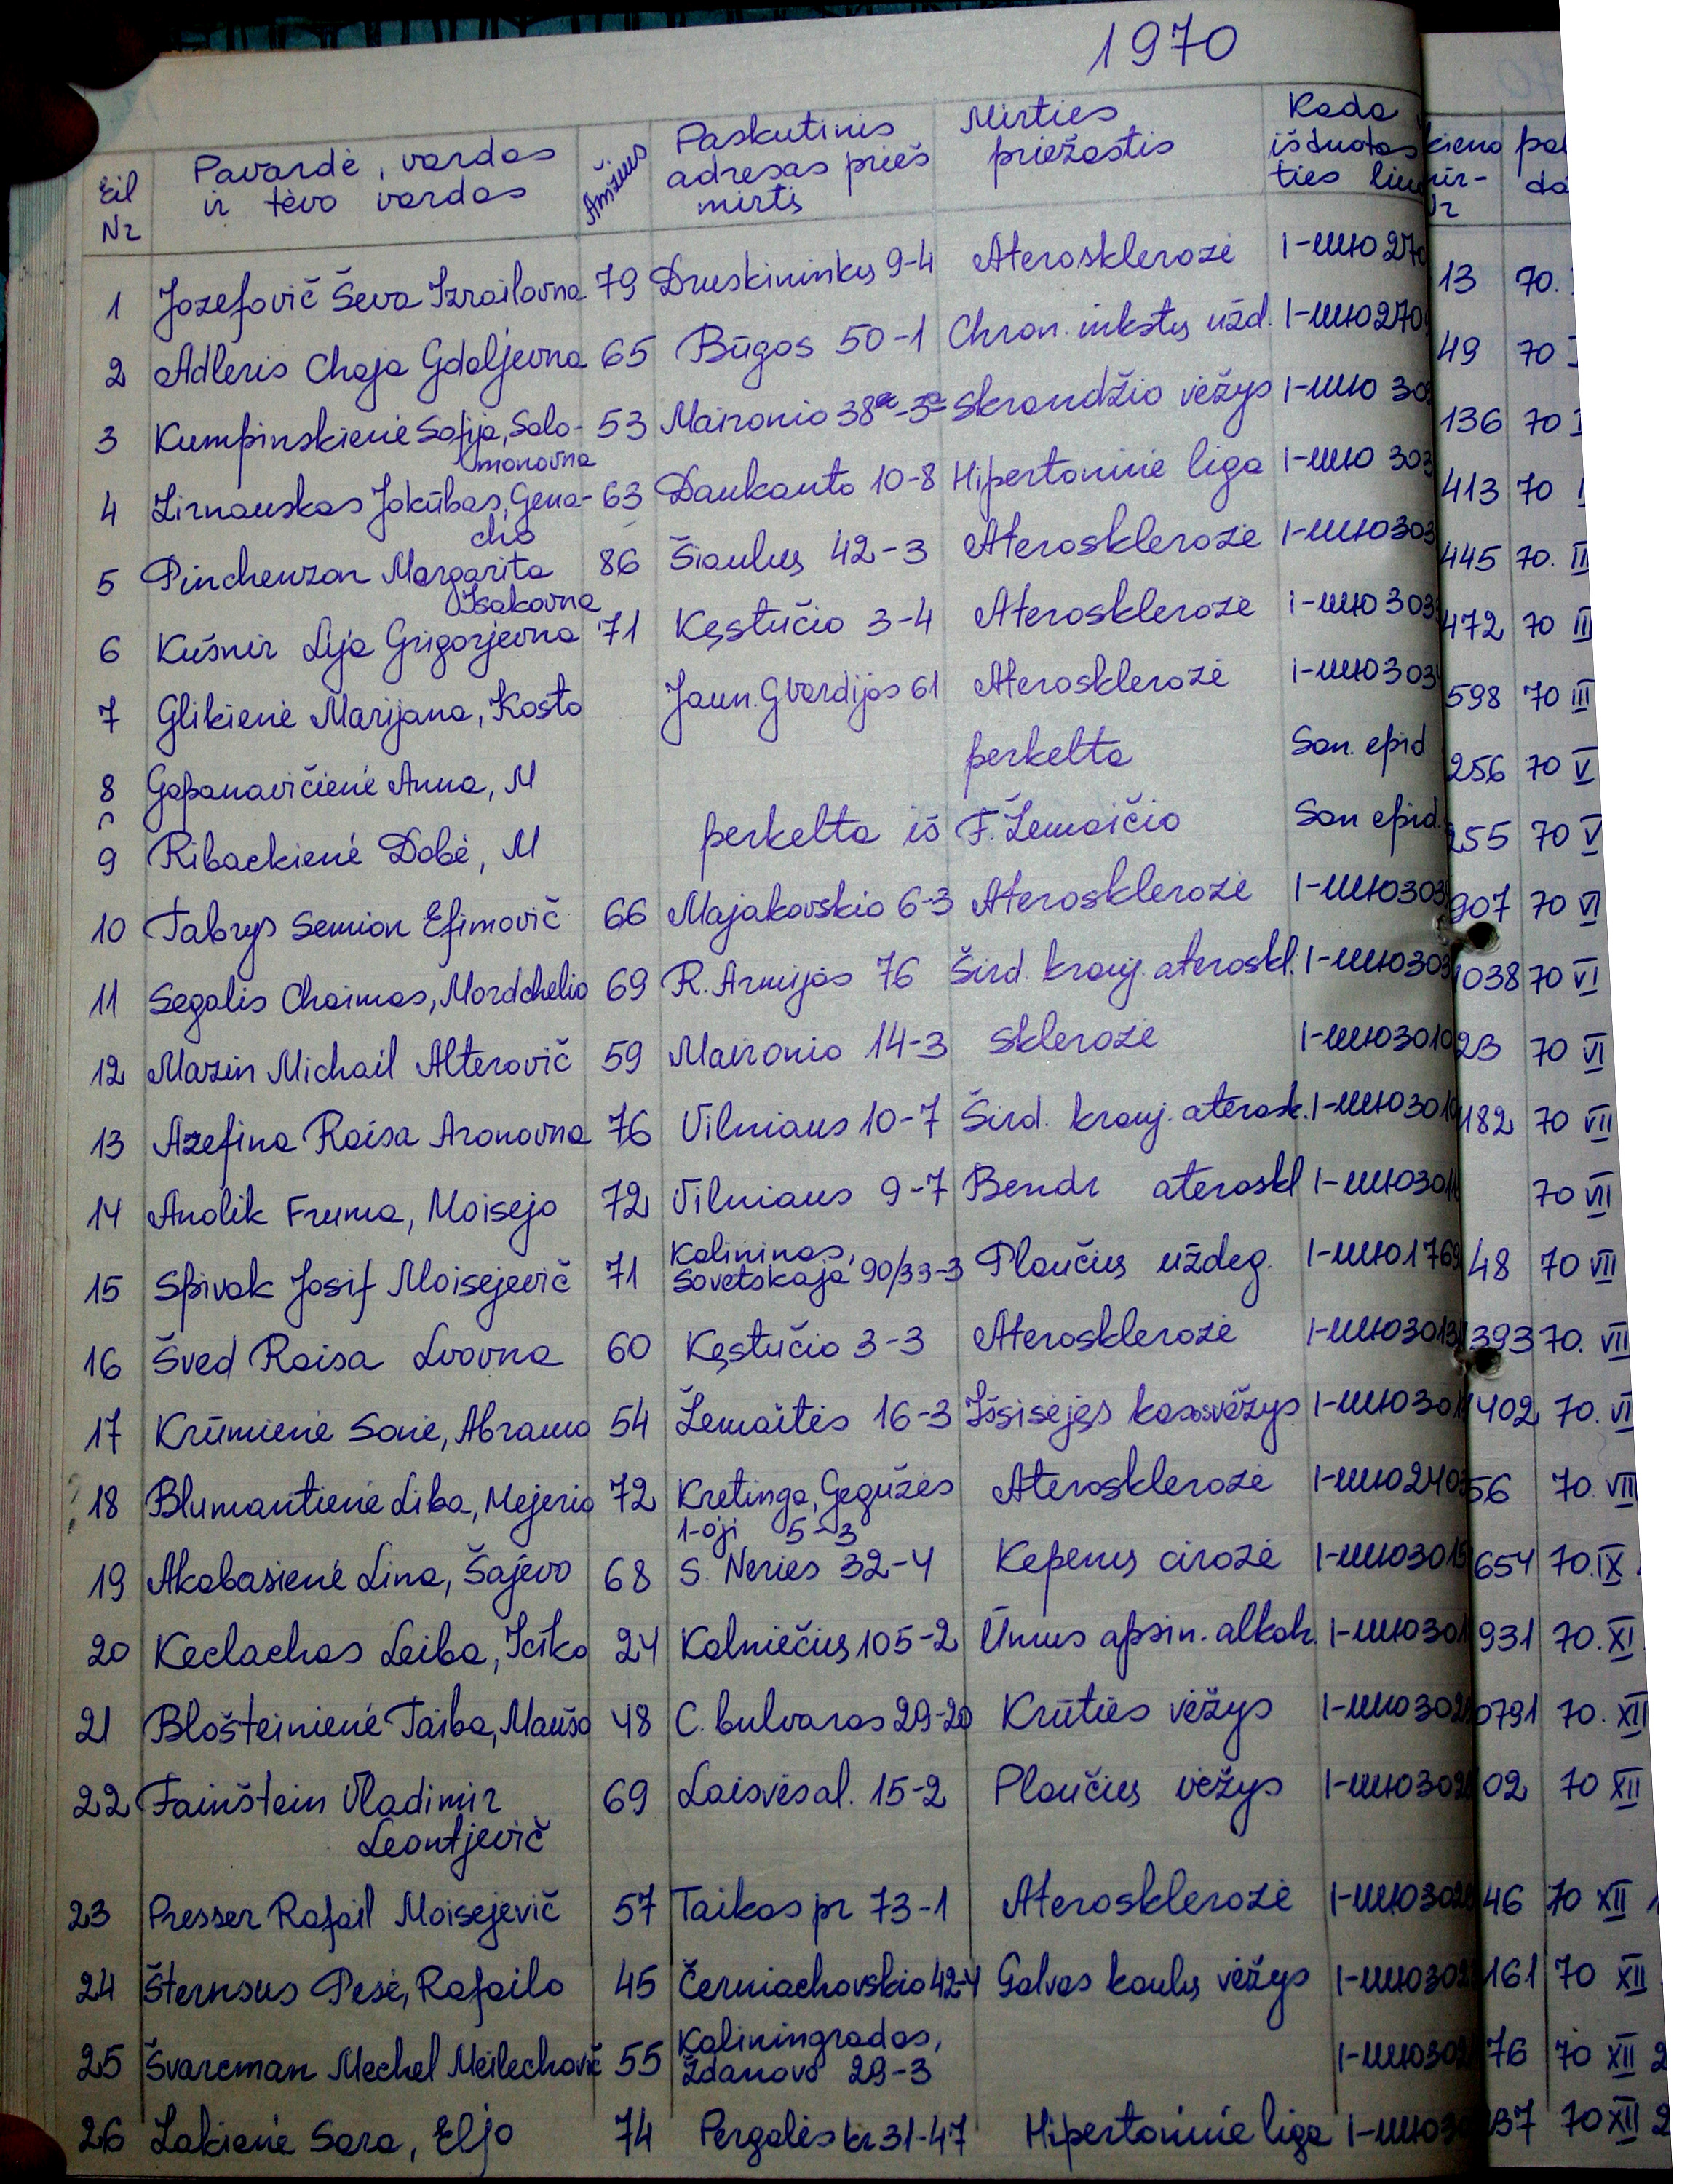 1970
Eil Nr Pavardė, vardas ir tėvo vardas Amžius Paskutinis adresas prieš mirtį Mirties priežastis Kada išduotas
1 Jozefovič Ševa Izrailovna 79 Druskininkų 9-4 Aterosklerozė 13 70.
2 Adleris Chaja Gdaljevna 65 Būgos 50-1 Chron. inkstų užd. 49 70
3 Kumpinskienė Sofija, Salo- 53 Maironio 38a-3a Skrandžio vėžys 136 70
monovna
4 Zirnauskas Jokūbas, Gena- 63 Daukanto 10-8 Hipertoninė liga 413 70
cho
5 Pinchenzon Margarita 86 Šiaulių 42-3 Aterosklerozė 445 70. II
Isakovna
6 Kušnir Lija Grigorjevna 71 Kęstučio 3-4 Aterosklerozė 472 70 II
7 Glikienė Marijana, Kosto Jaun. Gvardijos 61 Aterosklerozė 598 70 III
8 Gapanavičienė Anna, M perkelta San. epid 256 70 V
9 Ribackienė Dobė, M perkelta iš F. Žemaičio San epid. 255 70 V
10 Tabrys Semion Efimovič 66 Majakovskio 6-3 Aterosklerozė 907 70 VI
11 Segalis Chaimas, Mordchelio 69 R. Armijos 76 Šird. krauj. ateroskl. 1038 70 VI
12 Mazin Michail Alterovič 59 Maironio 14-3 sklerozė 23 70 VI
13 Azefina Raisa Aronovna 76 Vilniaus 10-7 Šird. krauj. aterosk. 182 70 VII
14 Anolik Fruma, Moisejo 72 Vilniaus 9-7 Bendr ateroskl 70 VII
15 Spivak Josif Moisejevič 71 Kalininas, Sovetskaja 90/33-3 Plaučių uždeg. 48 70 VII
16 Šved Raisa Lvovna 60 Kęstučio 3-3 Aterosklerozė 393 70. VII
17 Krūmienė Sonė, Abramo 54 Žemaitės 16-3 Išsisėjęs kasos vėžys 402 70.
18 Blumantienė Liba, Mejerio 72 Kretinga, Gegužės 1-oji 5-3 Aterosklerozė 56 70. VII
19 Akabasienė Lina, Šajevo 68 S. Nėries 32-4 Kepenų cirozė 654 70. IX
20 Keclachas Leiba, Icko 24 Kalniečių 105-2 Ūmus apsin. alkoh. 931 70. XI
21 Blošteinienė Taiba, Maušo 48 C. bulvaras 29-20 Krūties vėžys 0791 70. XII
22 Fainštein Vladimir 69 Laisvės al. 15-2 Plaučių vėžys 02 70 XII
Leontjevič
23 Presser Rafail Moisejevič 57 Taikos pr 73-1 Aterosklerozė 46 70 XII
24 Šternsus Pesė, Rafailo 45 Černiachovskio 42-4 Galvos kaulų vėžys 161 70 XII
25 Švarcman Mechel Meilechovič 55 Kaliningradas, Ždanovo 29-3 76 70 XII 2
26 Lakienė Sara, Eljo 74 Pergalės kr 31-47 Hipertoninė liga 70 XII 2